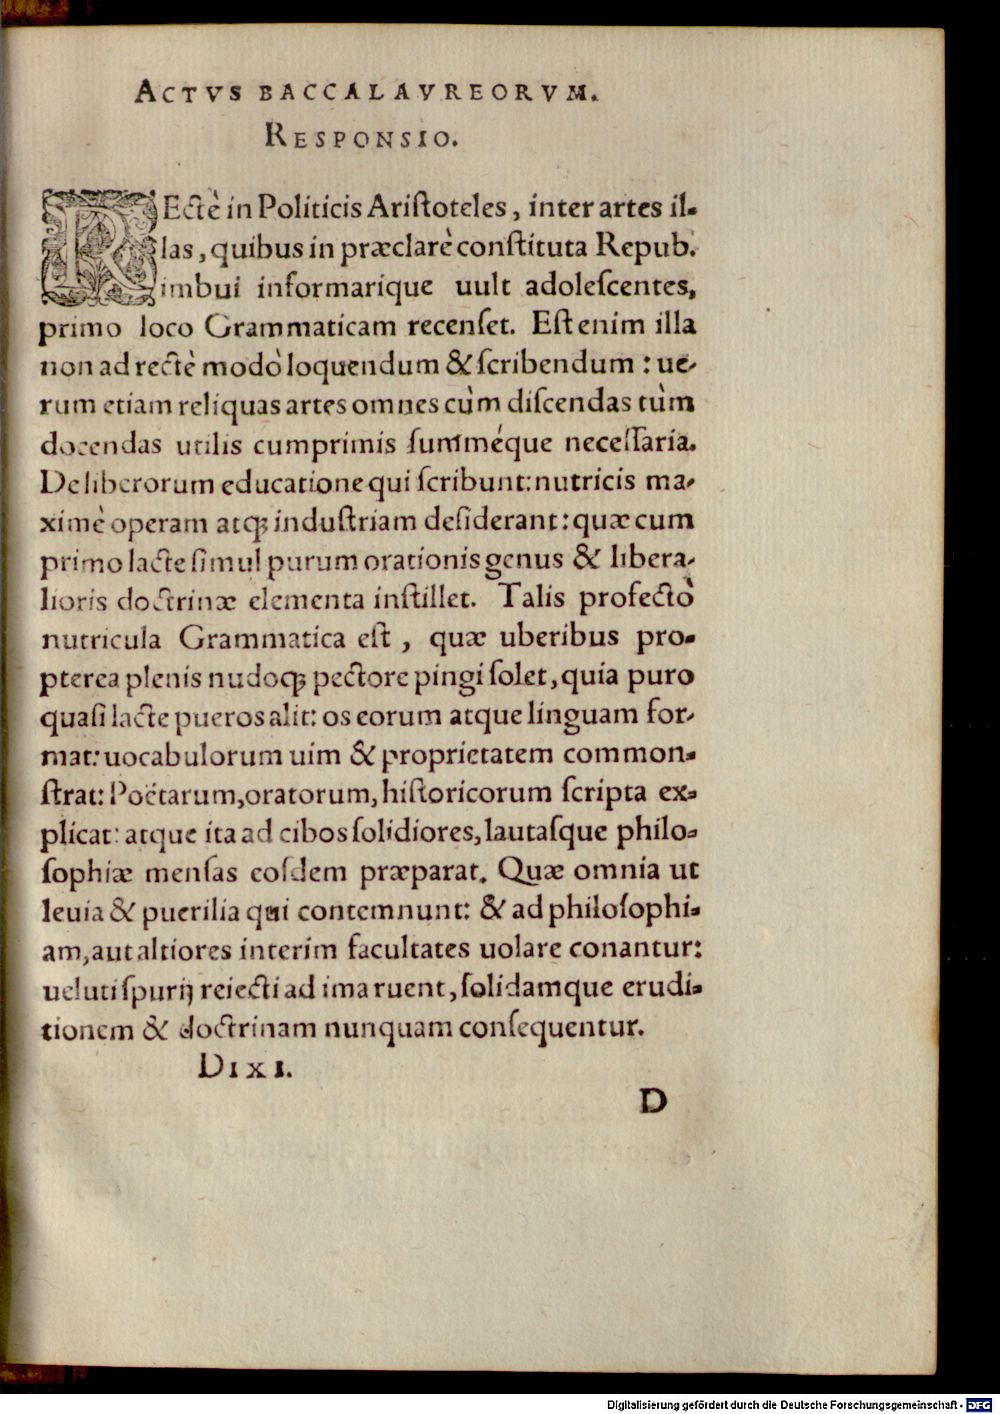 ACTVS BACCALAVREORVM.
RESPONSIO.
REctè in Politicis Ariſtoteles, inter artes il-
las, quibus in præclarè conſtituta Repub.
imbui informarique uult adoleſcentes,
primo loco Grammaticam recenſet. Eſt enim illa
non ad rectè modò loquendum & ſcribendum : ue-
rum etiam reliquas artes omnes cùm diſcendas tùm
docendas utilis cumprimis ſumméque neceſſaria.
De liberorum educatione qui ſcribunt: nutricis ma-
ximè operam atq; induſtriam deſiderant: quæ cum
primo lacte ſimul purum orationis genus & libera-
lioris doctrinæ elementa inſtillet. Talis profectò
nutricula Grammatica eſt, quæ uberibus pro-
pterea plenis nudoq; pectore pingi ſolet, quia puro
quaſi lacte pueros alit: os eorum atque linguam for-
mat: uocabulorum uim & proprietatem common-
ſtrat: Poëtarum, oratorum, hiſtoricorum ſcripta ex-
plicat: atque ita ad cibos ſolidiores, lautaſque philo-
ſophiæ menſas eoſdem præparat. Quæ omnia ut
leuia & puerilia qui contemnunt: & ad philoſophi-
am, aut altiores interim facultates uolare conantur:
ueluti ſpurij reiecti ad ima ruent, ſolidamque erudi-
tionem & doctrinam nunquam conſequentur.
DIXI.
D
Digitalisierung gefördert durch die Deutsche Forschungsgemeinschaft - DFG